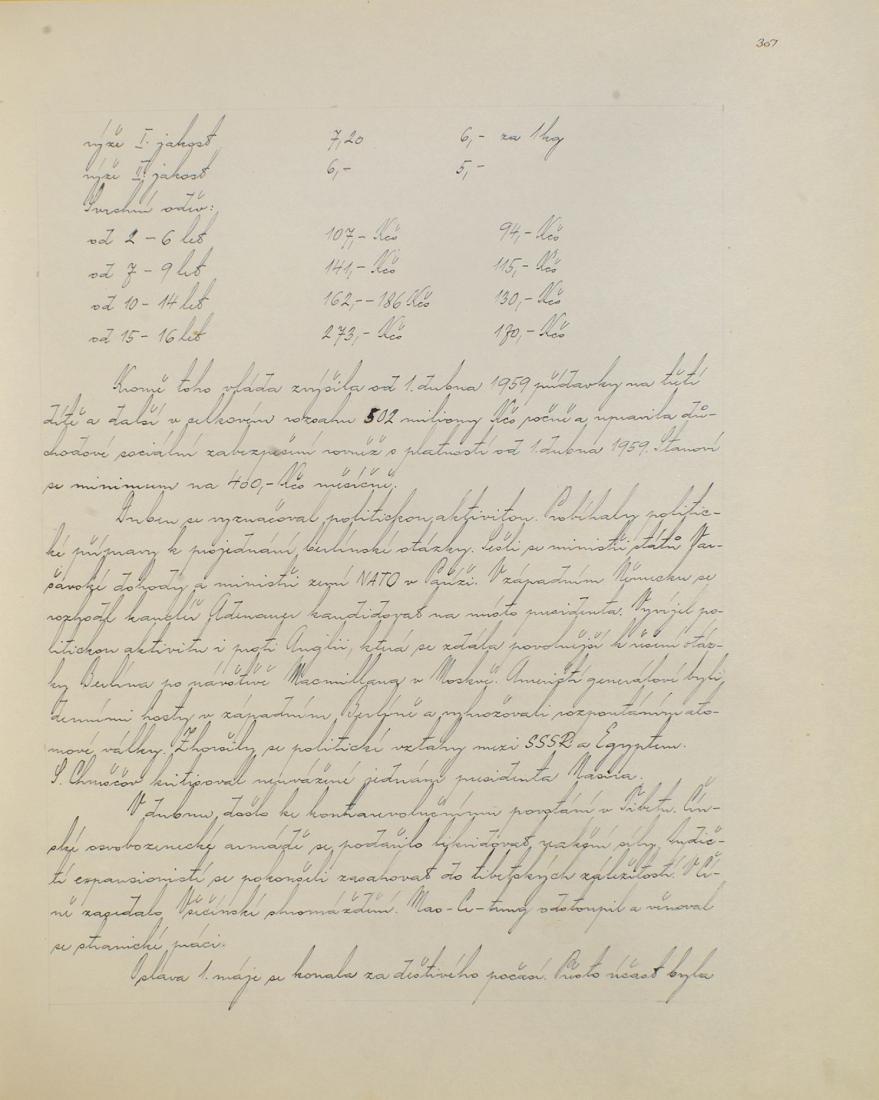 307
rýže I. jakost 7,20 6,- za 1 kg
rýže II. jakost 6,- 5,-
Svrchní oděv:
od 2 - 6 let 107,- Kčs 94,- Kčs
od 7 - 9 let 141,- Kčs 115,- Kčs
od 10 - 14 let 162,- - 186 Kčs 130,- Kčs
od 15 - 16 let 273,- Kčs 170,- Kčs
Kromě toho vláda zvýšila od 1. dubna 1959 přídavky na třetí
dítě a další v celkovém rozsahu 502 miliony Kčs ročně a upravila dů-
chodové sociální zabezpečení rovněž s platností od 1. dubna 1959. Stanoví
se minimum na 400,- Kčs měsíčně.
Duben se vyznačoval politickou aktivitou. Probíhaly politic-
ké přípravy k projednání berlínské otázky. Sešli se ministři států Var-
šavské dohody a ministři zemí NATO v Paříži. V západním Německu se
rozhodl kancléř Adenauer kandidovat na místo presidenta. Vyvíjel po-
litickou aktivitu i proti Anglii, která se zdála povolnější k řešení otáz-
ky Berlína po návštěvě Macmillana v Moskvě. Američtí generálové byli
denními hosty v západním Berlíně a vyhrožovali rozpoutáním ato-
mové války. Zhoršily se politické vztahy mezi SSSR a Egyptem.
S. Chruščov kritisoval neuvážené jednání presidenta Násira.
V dubnu došlo ke kontrarevolučnímu povstání v Tibetu. Čín-
ské osvobozenecké armádě se podařilo likvidovat reakční síly. Indič-
tí expansionisté se pokoušeli zasahovat do tibetských záležitostí. V Čí-
ně zasedalo Všečínské shromáždění. Mao-Ce-tung odstoupil a věnoval
se stranické práci.
Oslava 1. máje se konala za deštivého počasí. Přesto účast byla